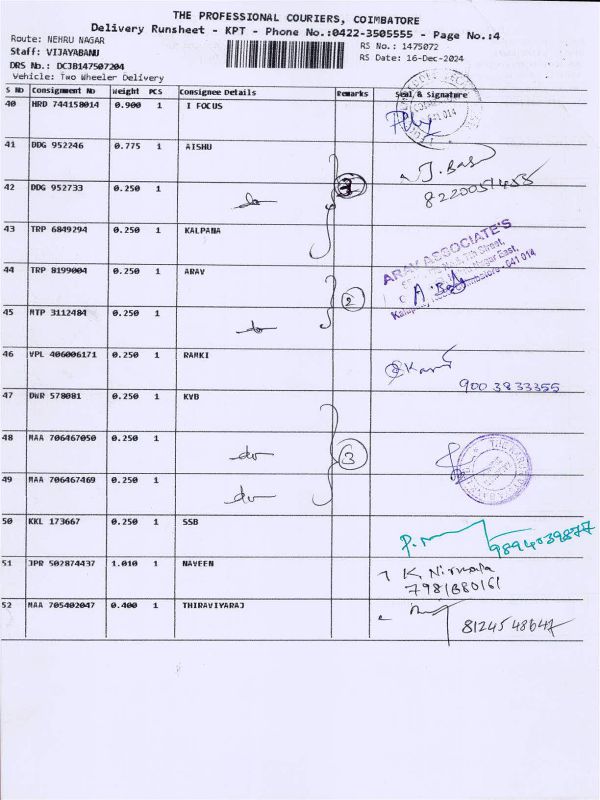 THE PROFESSIONAL COURIERS, COIMBATORE
Delivery Runsheet - KPT - Phone No.:0422-3505555 - Page No.:4
Route: NEHRU NAGAR
RS No.: 1475072
Staff: VIJAYABANU
RS Date: 16-Dec-2024
DRS No.: DCJB147507204
Vehicle: Two Wheeler Delivery
S NO Consignment No Weight PCS Consignee Details Remarks Seal & Signature
40 HRD 744158014 0.900 1 I FOCUS
41 DDG 952246 0.775 1 AISHU
42 DDG 952733 0.250 1 do 3
8220051455
43 TRP 6849294 0.250 1 KALPANA
ARAV ASSOCIATE'S
44 TRP 8199004 0.250 1 ARAV 2
45 MTP 3112484 0.250 1 do
46 VPL 406006171 0.250 1 RAMKI
9003833355
47 DWR 578081 0.250 1 KVB
48 MAA 706467050 0.250 1 do 3
49 MAA 706467469 0.250 1 do
50 KKL 173667 0.250 1 SSB
9894039877
51 JPR 502874437 1.010 1 NAVEEN K. Nirmala
7981880161
52 MAA 705402047 0.400 1 THIRAVIYARAJ
8124548647